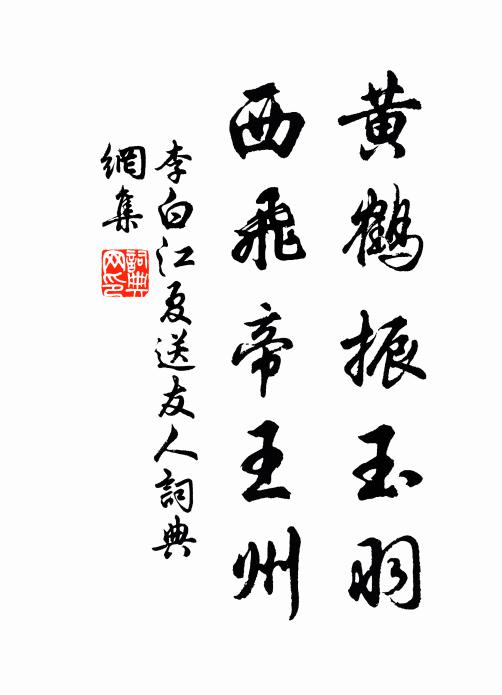 黄鶴振玉羽
西飛帝王州
李白江夏送友人詞典
網集
詞典
网印